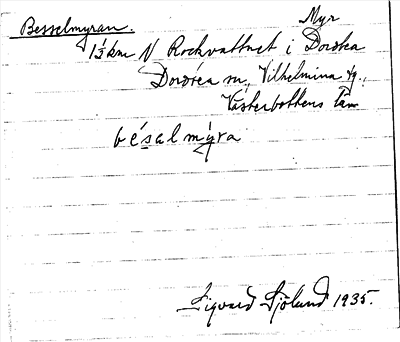 Besselmyran. Myr
1½ km N Rockvattnet i Dorotea
Dorotea sn, Vilhelmina tg.,
Västerbottens län
bésalmýra
Sigvard Sjölund 1935.